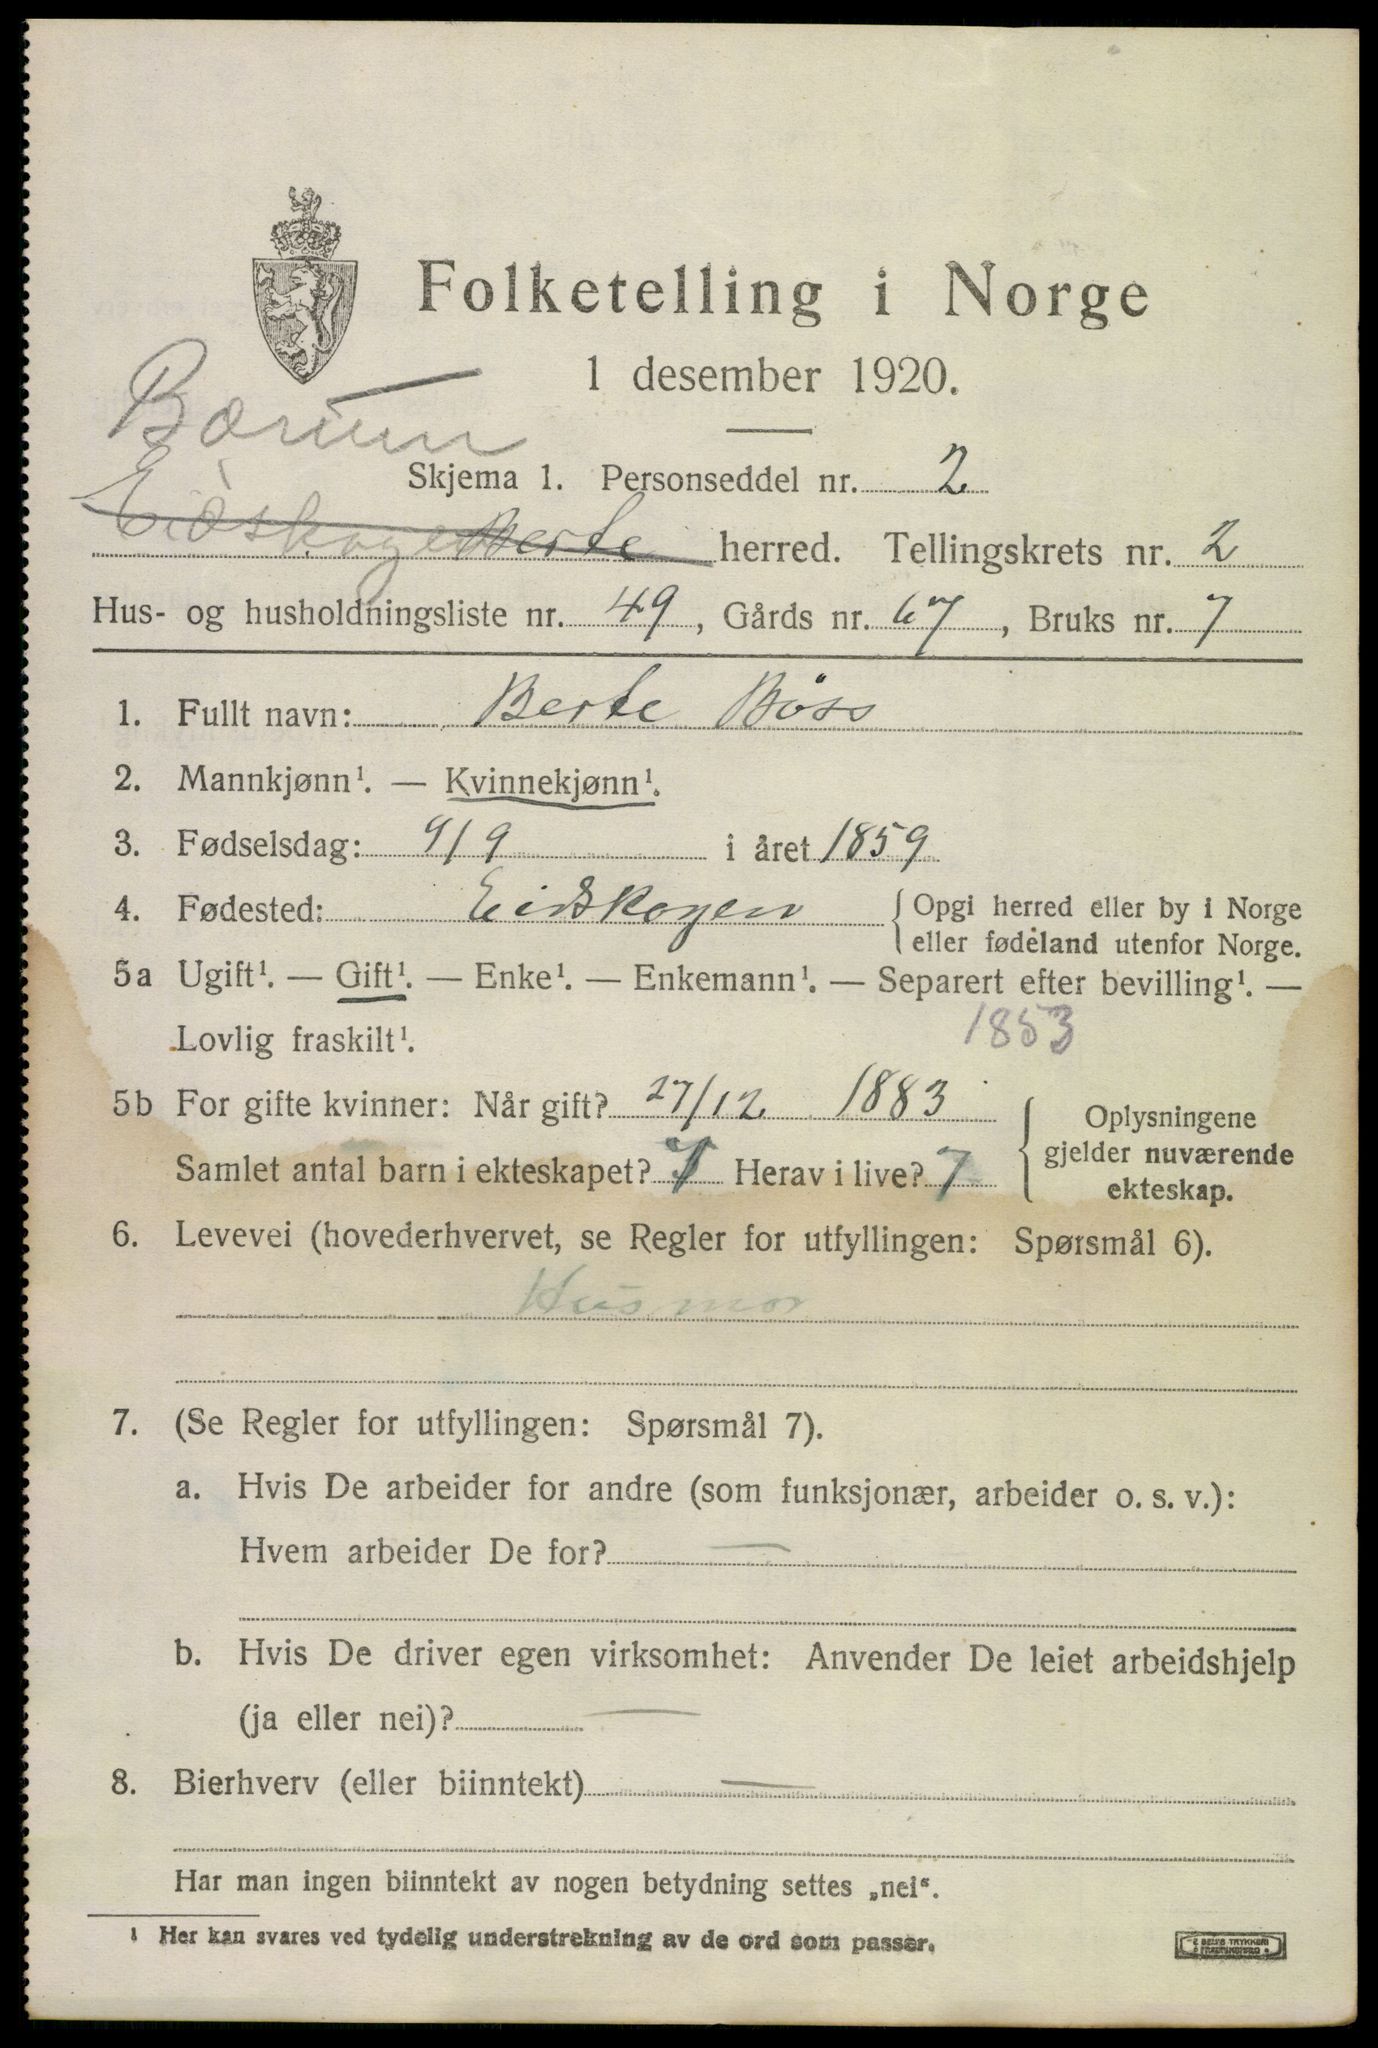 Folketelling i Norge
1 desember 1920.
Bærum
Skjema 1. Personseddel nr. 2
Eidskogen Berte herred. Tellingskrets nr. 2
Hus- og husholdningsliste nr. 49, Gårds nr. 67, Bruks nr. 7
1. Fullt navn: Berte Böss
2. Mannkjønn¹. — Kvinnekjønn¹.
3. Fødselsdag: 9/9 i året 1859
4. Fødested: Eidskogen { Opgi herred eller by i Norge
eller fødeland utenfor Norge.
5a Ugift¹. — Gift¹. — Enke¹. — Enkemann¹. — Separert efter bevilling¹. —
Lovlig fraskilt¹. 1853
5b For gifte kvinner: Når gift? 27/12 1883 { Oplysningene
gjelder nuværende
ekteskap.
Samlet antal barn i ekteskapet? 7 Herav i live? 7
6. Levevei (hovederhvervet, se Regler for utfyllingen: Spørsmål 6).
Husmor
7. (Se Regler for utfyllingen: Spørsmål 7).
a. Hvis De arbeider for andre (som funksjonær, arbeider o. s. v.):
Hvem arbeider De for? —
b. Hvis De driver egen virksomhet: Anvender De leiet arbeidshjelp
(ja eller nei)? —
8. Bierhverv (eller biinntekt) —
Har man ingen biinntekt av nogen betydning settes „nei“.
¹ Her kan svares ved tydelig understrekning av de ord som passer.